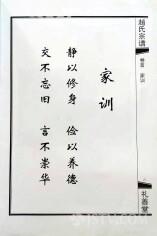 趙氏宗谱
卷首 家训
家训
静以修身 俭以养德
交不忘旧 言不崇华
礼善堂